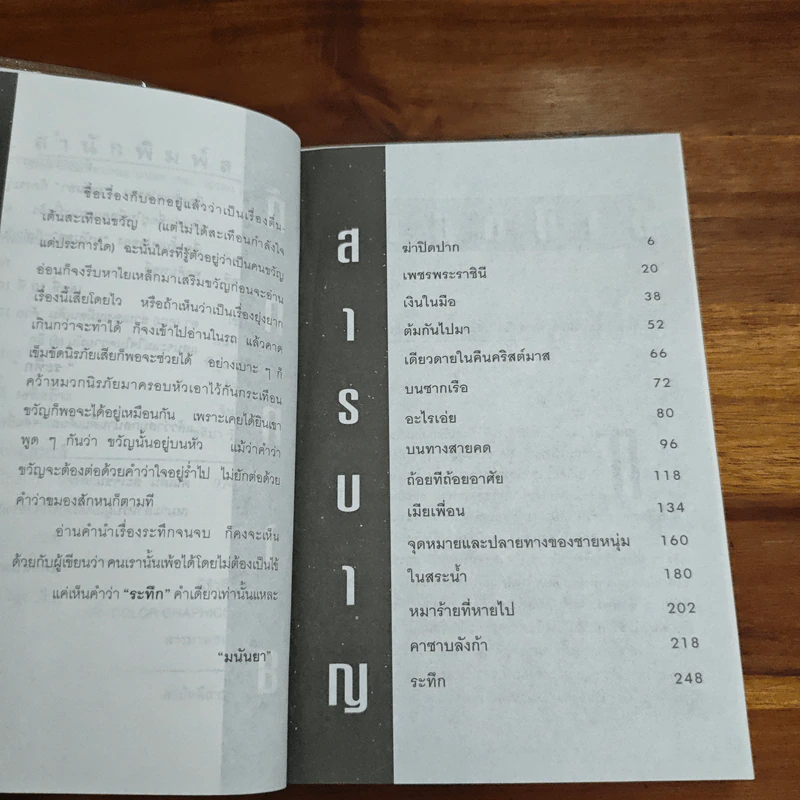 ชื่อเรื่องก็บอกอยู่แล้วว่าเป็นเรื่องตื่น-
เต้นสะเทือนขวัญ (แต่ไม่ได้สะเทือนกำลังใจ
แต่ประการใด) ฉะนั้นใครที่รู้ตัวอยู่ว่าเป็นคนขวัญ
อ่อนก็จงรีบหาไยเหล็กมาเสริมขวัญก่อนจะอ่าน
เรื่องนี้เสียโดยไว หรือถ้าเห็นว่าเป็นเรื่องยุ่งยาก
เกินกว่าจะทำได้ ก็จงเข้าไปอ่านในรถ แล้วคาด
เข็มขัดนิรภัยเสียก็พอจะช่วยได้ อย่างเบาะ ๆ ก็
คว้าหมวกนิรภัยมาครอบหัวเอาไว้กันกระเทือน
ขวัญก็พอจะได้อยู่เหมือนกัน เพราะเคยได้ยินเขา
พูด ๆ กันว่า ขวัญนั้นอยู่บนหัว แม้ว่าคำว่า
ขวัญจะต้องต่อด้วยคำว่าใจอยู่ร่ำไป ไม่ยักต่อด้วย
คำว่าขมองสักหนก็ตามที
อ่านคำนำเรื่องระทึกจนจบ ก็คงจะเห็น
ด้วยกับผู้เขียนว่า คนเรานั้นเพ้อได้โดยไม่ต้องเป็นไข้
แค่เห็นคำว่า “ระทึก” คำเดียวเท่านั้นแหละ
“มนันยา”
สารบาญ
ฆ่าปิดปาก 6
เพชรพระราชินี 20
เงินในมือ 38
ต้มกันไปมา 52
เดียวดายในคืนคริสต์มาส 66
บนซากเรือ 72
อะไรเอ่ย 80
บนทางสายคด 96
ถ้อยทีถ้อยอาศัย 118
เมียเพื่อน 134
จุดหมายและปลายทางของชายหนุ่ม 160
ในสระน้ำ 180
หมาร้ายที่หายไป 202
คาซาบลังก้า 218
ระทึก 248